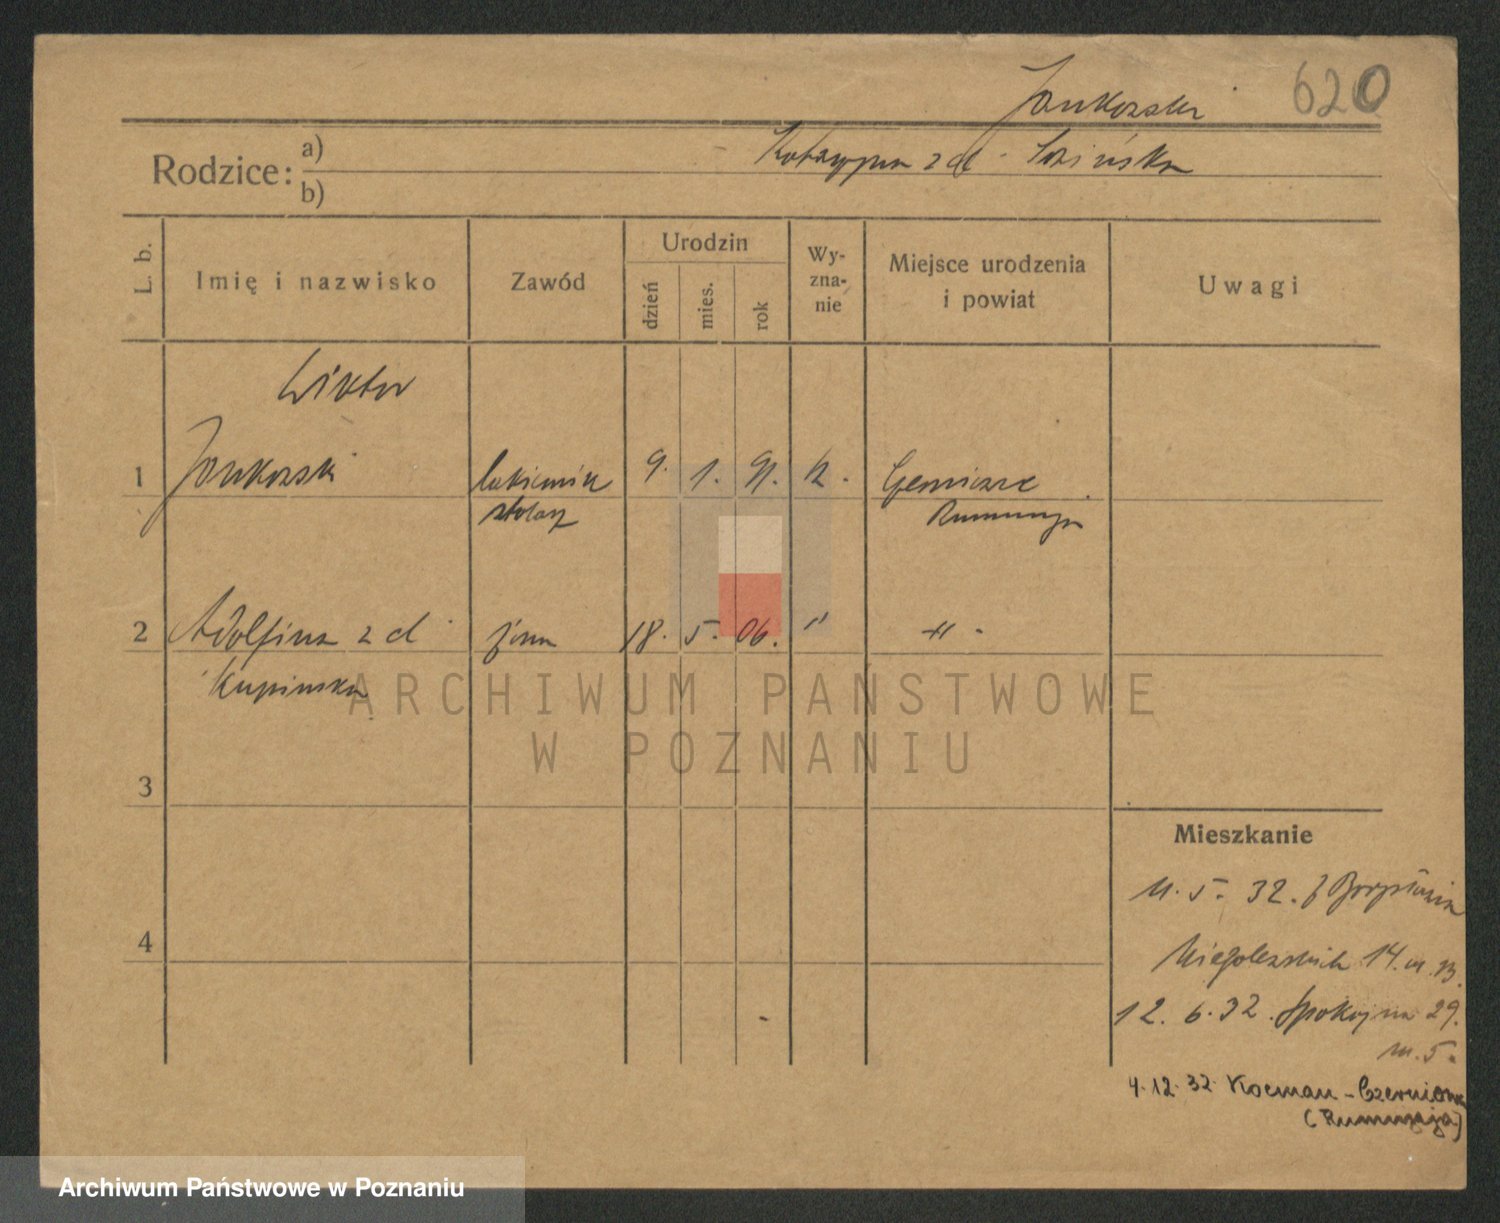 620
Jankowski
Rodzice: a)
Katarzyna z d.
b)
L. b.
Imię i nazwisko
Zawód
Urodzin
dzień
mies.
rok
Wy-
zna-
nie
Miejsce urodzenia
i powiat
Uwagi
Wiktor
1 Jankowski stolarz 9. 1. 91. k.
Rumunja
2 Adolfina z d. żona 18. 5. 06. " "
Kupinska
3
4
Mieszkanie
11. 5. 32. z
Niegolewskich 14. m. 13.
12. 6. 32. Spokojna 29.
m. 5.
4. 12. 32 Kocman -
(Rumunja)
ARCHIWUM PAŃSTWOWE
W POZNANIU
Archiwum Państwowe w Poznaniu